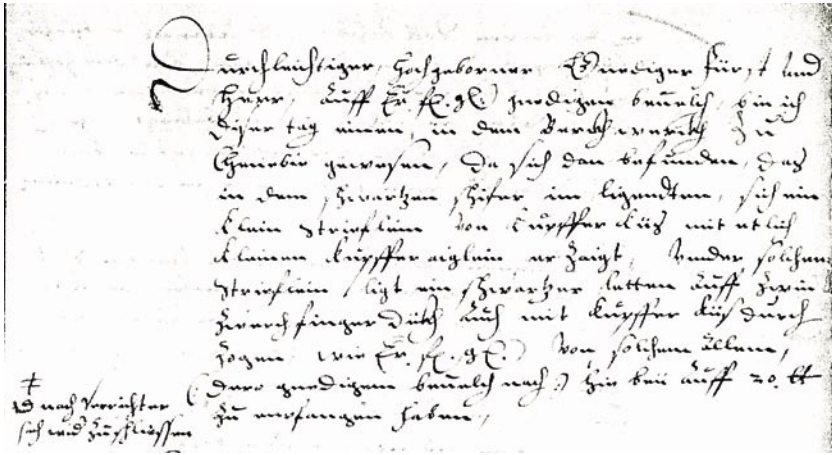 Durchleichtiger, Hochgeborner Gnediger Fürst und
Herr, Auff Er. fl. gl. gnedigen beuelch, bin ich
diser tag einen, in dem Berckhwerckh zu
gewesen, da sich dan befunden, das
in dem schwartzen schifer im ligendten, sich ein
klein Strieflein von Kupffer Küs mit etlich
kleinen Kupffer aiglein erzaigt, Under solchem
Strieflein, ligt ein schwartzer letten auff zwen
zwerch finger dückh auch mit Kupffer Küs durch
zogen, wie Er. fl. gl. von solchem allem,
(dero gnedigem beuelch nach) hie beii auff 20. lb
zu empfangen haben,
nach verrichter
sich wid zuschliessen